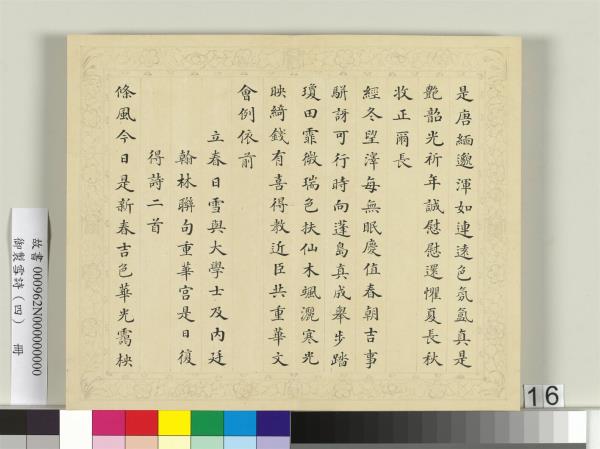 是唐緬邈渾如連遠色氛氳真是
艷韶光祈年誠慰慰還懼夏長秋
收正爾長
經冬望澤每無眠慶值春朝吉事
駢訝可行時向蓬島真成舉步踏
瓊田霏微瑞色扶仙木颯灑寒光
映綺錢有喜得教近臣共重華文
會例依前
立春日雪與大學士及內廷
翰林聯句重華宮是日復
得詩二首
條風今日是新春吉色華光靄柍
故書000962N000000000
御製雪詩(四) 冊
16